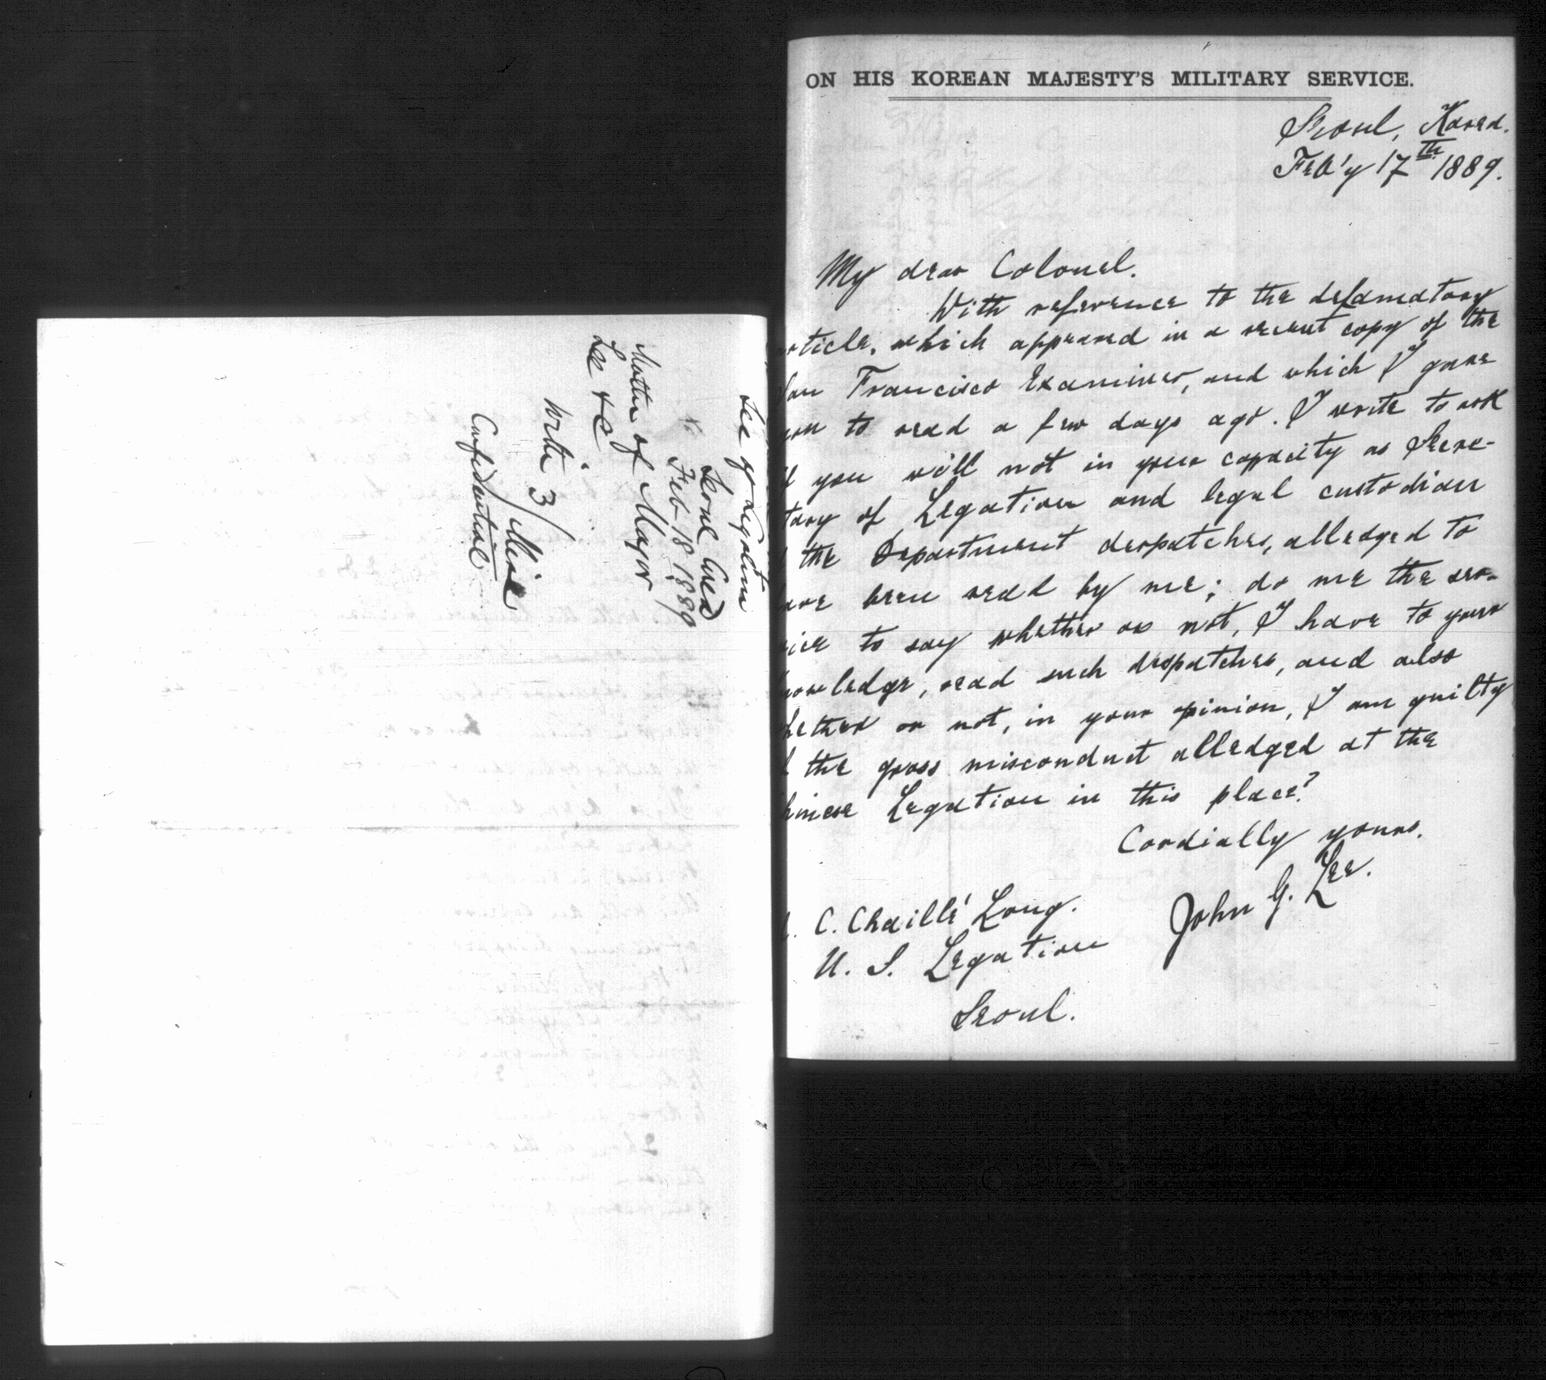 See of Legation
Seoul Corea
Feb 18 1889
Matter of Mayor
Lee &c
Write 3
Confidential
ON HIS KOREAN MAJESTY'S MILITARY SERVICE.
Seoul, Korea.
Feb'y 17th 1889.
My dear Colonel.
With reference to the defamatory
rticle, which appeared in a recent copy of the
an Francisco Examiner, and which I gave
you to read a few days ago. I write to ask
f you will not in your capacity as Secre-
tary of Legation and legal custodian
the Department despatches, alledged to
ave been read by me; do me the ser-
vice to say whether or not, I have to your
nowledge, read such despatches, and also
hether or not, in your opinion, I am guilty
f the gross misconduct alledged at the
hinese Legation in this place?
Cordially yours.
John G. Lee.
C. Chaillé Long.
U. S. Legation
Seoul.